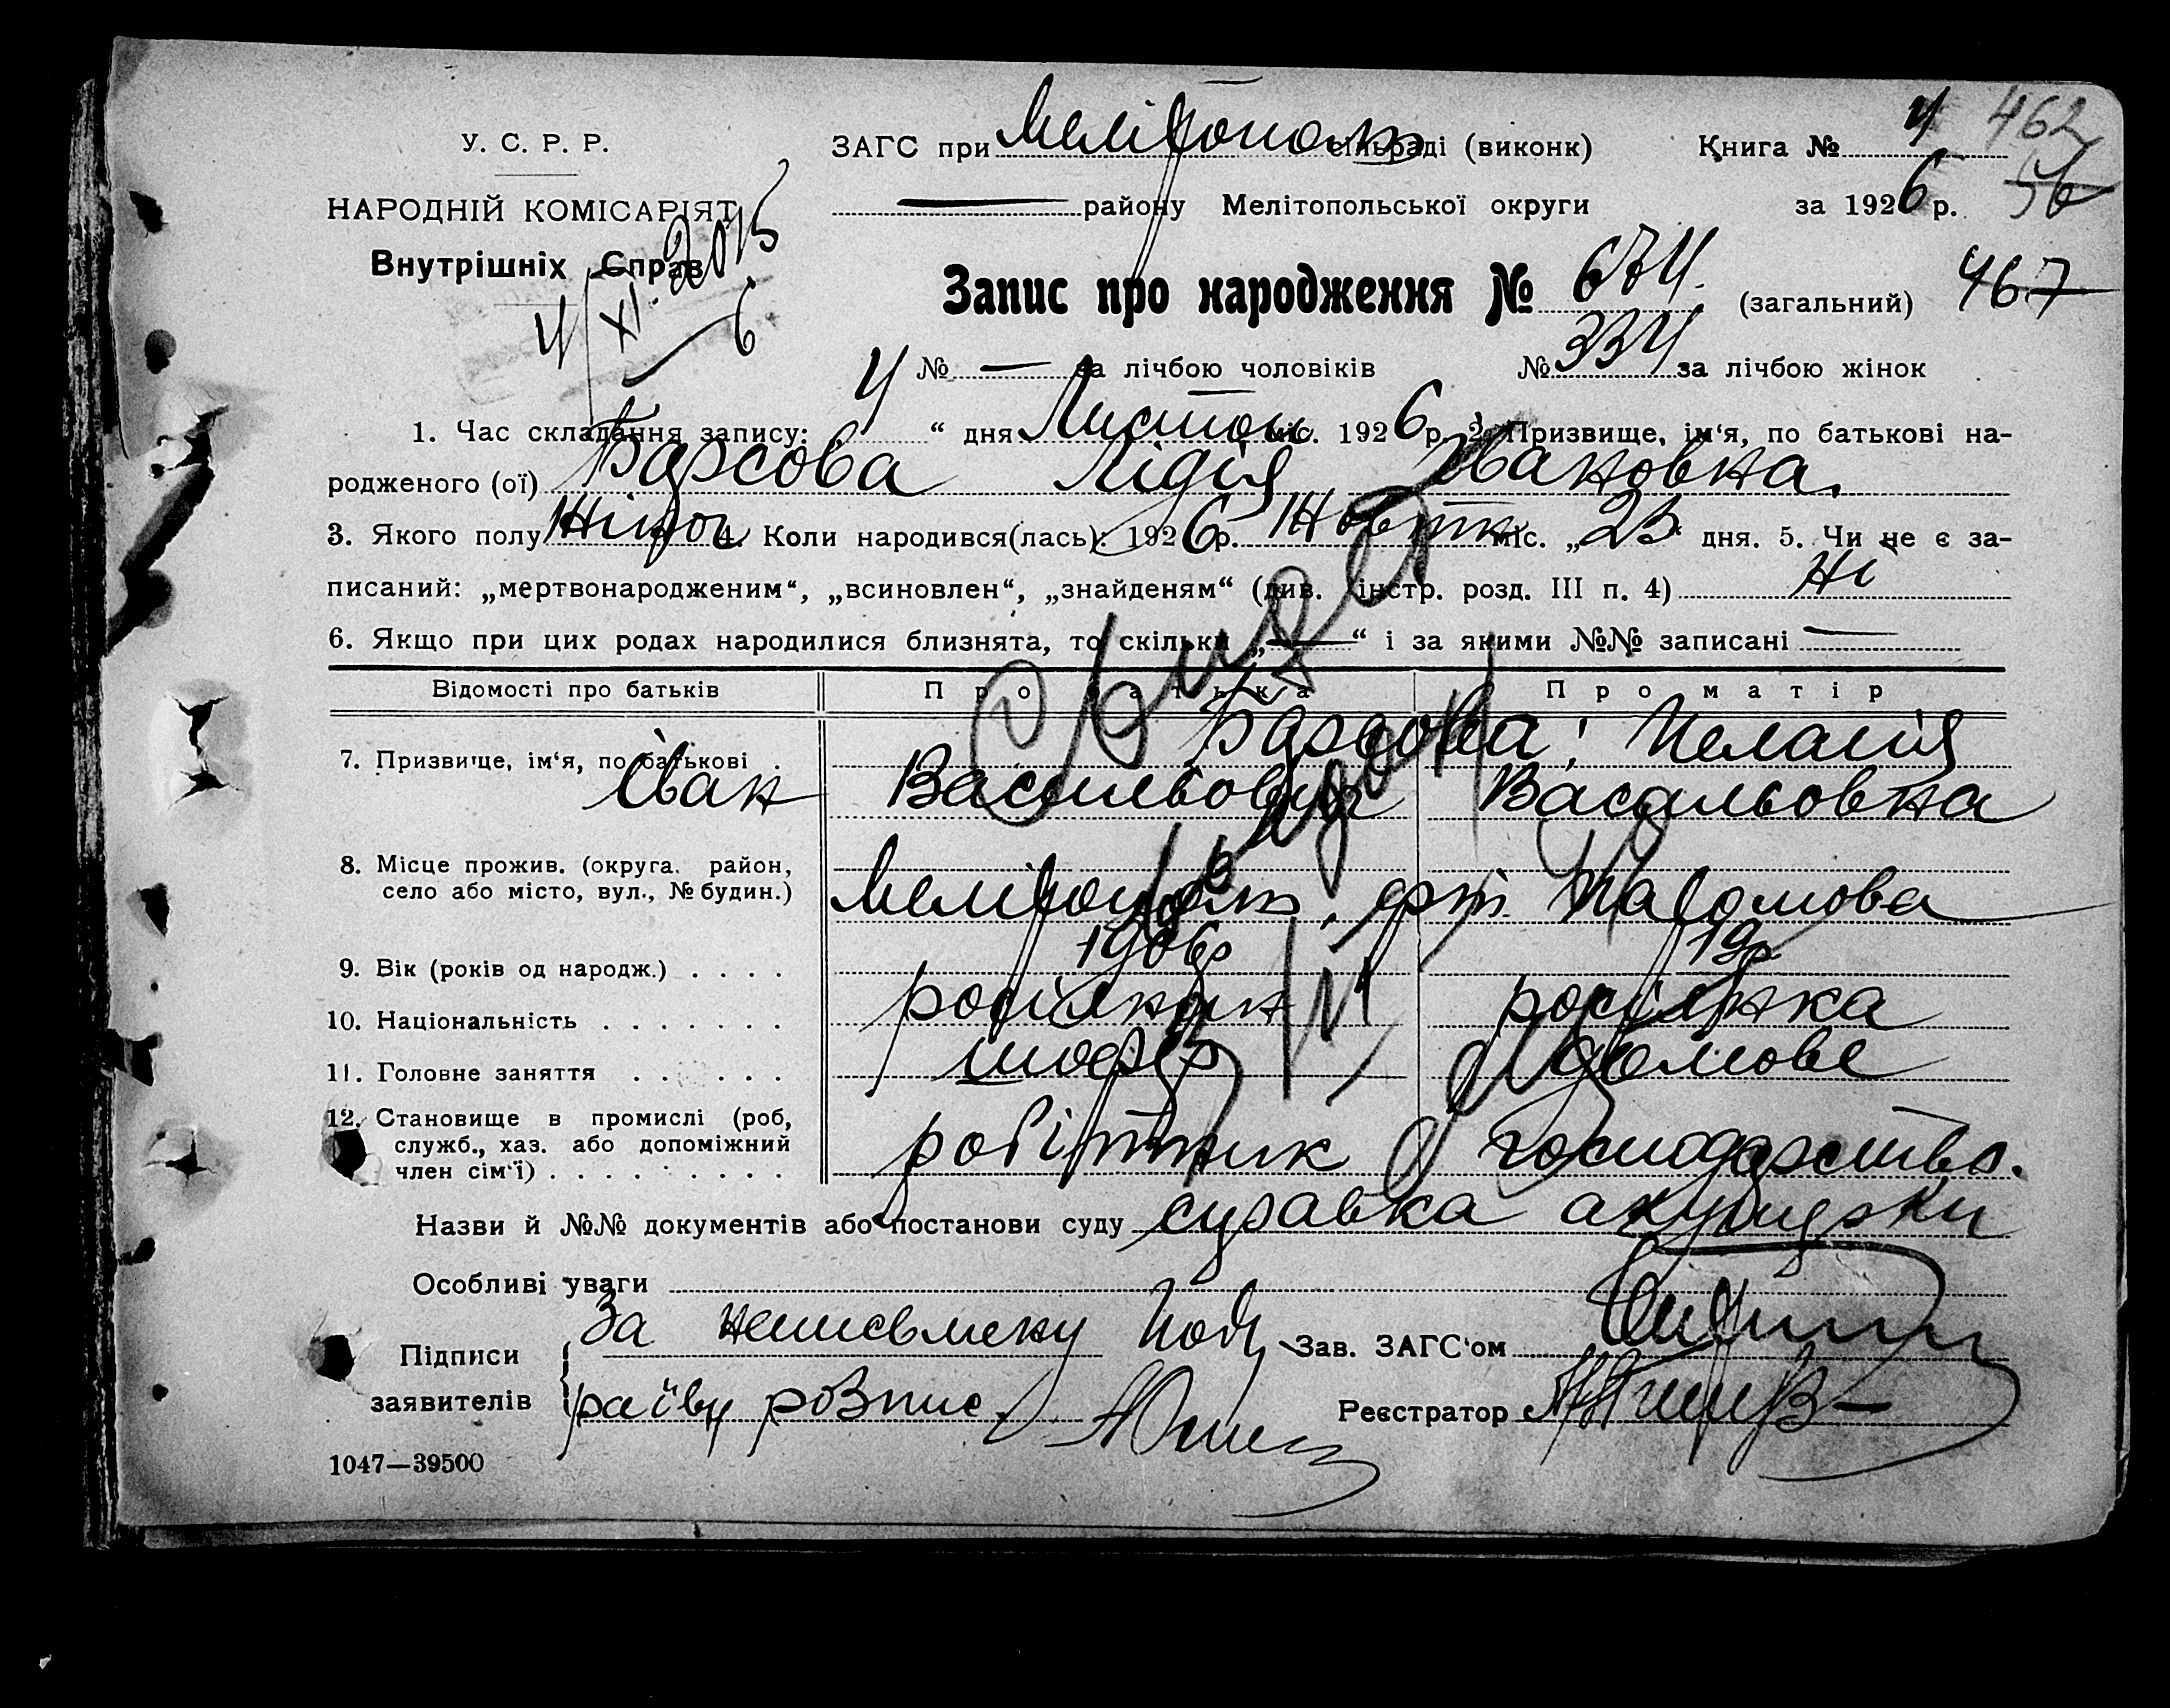 462
У. С. Р. Р.
ЗАГС при Мелітополь сільраді (виконк)
Книга № 4
56
НАРОДНІЙ КОМІСАРІЯТ
— району Мелітопольської округи
за 1926 р.
Внутрішніх Справ
Запис про народження № 674. (загальний)
467
4/XI
6
№ — за лічбою чоловіків № 334 за лічбою жінок
1. Час складання запису: 4 “ дня Листоп міс. 1926 р. 2. Призвище, ім‘я, по батькові на-
родженого (ої) Барсова Лідія Івановна.
3. Якого полу Жіноч 4. Коли народився(лась): 1926 р. Жовтн міс. „23“ дня. 5. Чи не є за-
писаний: „мертвонародженим“, „всиновлен“, „знайденям“ (див. інстр. розд. III п. 4) Ні
6. Якщо при цих родах народилися близнята, то скільки „—“ і за якими №№ записані —
Відомості про батьків
Про батька
Про матір
Барсова; Меланія
7. Призвище, ім‘я, по батькові .
Іван Васильович Васильовна
8. Місце прожив. (округа. район,
село або місто, вул., № будин.)
Мелітополь,
9. Вік (років од народж.) . . . .
1906р 19р
10. Національність . . . . . . .
росіянин росіянка
11. Головне заняття . . . . . .
шофер домове
12. Становище в промислі (роб,
служб., хаз. або допоміжний
член сім‘ї) . . . . . . . . .
робітник господарство.
Назви й №№ документів або постанови суду справка акушерки
Особливі уваги
За неписьмену
Підписи
заявителів
розпис
Зав. ЗАГС‘ом
Реєстратор
1047—39500